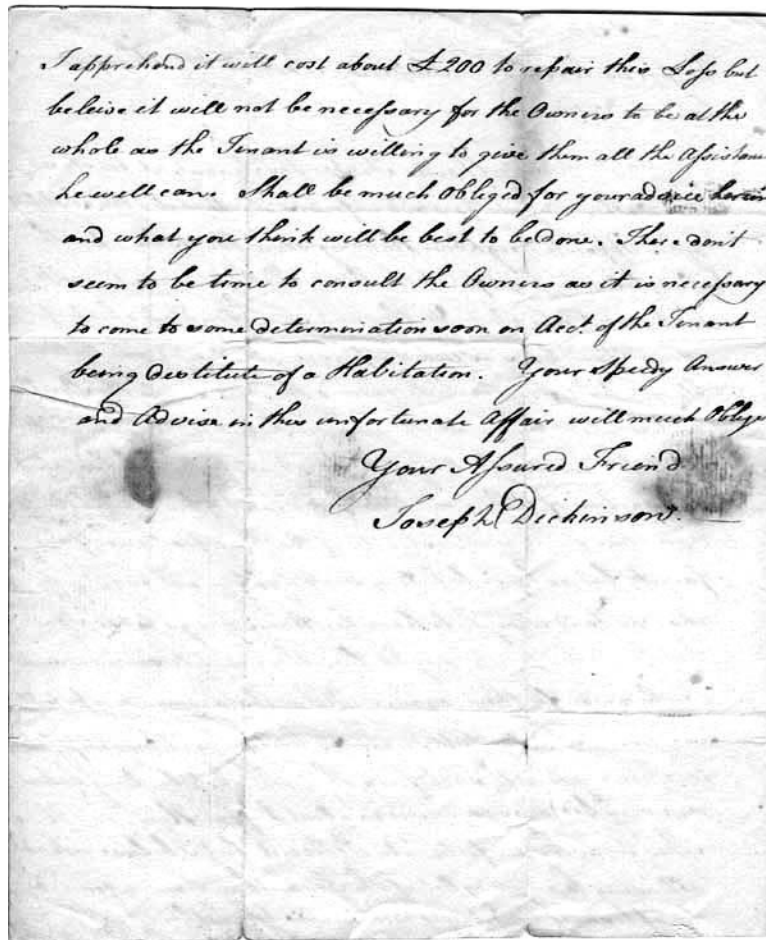 I apprehend it will cost about £200 to repair this Loss but
beleive it will not be necessary for the Owners to be at the
whole as the Tenant is willing to give them all the Assistan
he well can. Shall be much Obliged for your advice herin
and what you think will be best to be done. There don't
seem to be time to consult the Owners as it is necessary
to come to some determination soon on Acct. of the Tenant
being destitute of a Habitation. Your Speedy Answer
and Advise in this unfortunate Affair will much Oblige
Your Assured Friend
Joseph Dickinson.